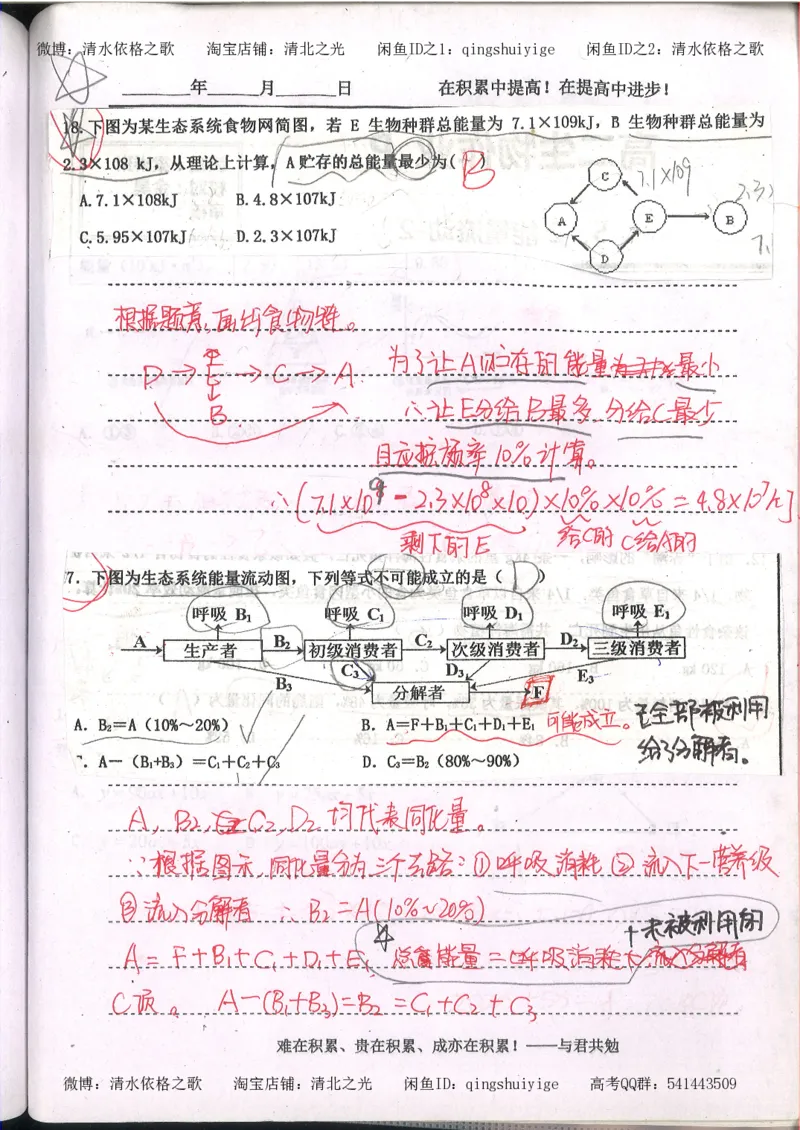 微博：清水依格之歌 淘宝店铺：清北之光 闲鱼ID之1：qingshuiyige 闲鱼ID之2：清水依格之歌
年 月 日 在积累中提高！在提高中进步！
18.下图为某生态系统食物网简图，若 E 生物种群总能量为 7.1×109kJ，B 生物种群总能量为
2.3×108 kJ，从理论上计算，A贮存的总能量最少为( B )
A.7.1×108kJ B.4.8×107kJ
C.5.95×107kJ D.2.3×107kJ
C 7.1×109
A E B
D
根据题意，画出食物链。
D→E→C→A
B
为了让A贮存的能量最小
∴让E分给B最多,分给C最少
且应按效率10%计算。
∴(7.1×10⁹-2.3×10⁸×10)×10%×10%=4.8×10⁷kJ
剩下的E 给C的 C给A的
7. 下图为生态系统能量流动图，下列等式不可能成立的是（ D ）
呼吸 B₁ 呼吸 C₁ 呼吸 D₁ 呼吸 E₁
A 生产者 B₂ 初级消费者 C₂ 次级消费者 D₂ 三级消费者
B₃ C₃ D₃ E₃
分解者 F
A. B₂=A（10%～20%） B. A=F+B₁+C₁+D₁+E₁ 可能成立。
全部被利用
给了分解者。
C. A-（B₁+B₃）=C₁+C₂+C₃ D. C₃=B₂（80%～90%）
A, B₂, C₂, D₂ 均代表同化量。
∵根据图示,同化量分为三个去路:①呼吸消耗 ②流入下一营养级
③流入分解者 ∴B₂=A(10%~20%)
+未被利用的
A=F+B₁+C₁+D₁+E₁ 总能量=呼吸消耗+流入分解者
C项。 A-(B₁+B₃)=B₂=C₁+C₂+C₃
难在积累、贵在积累、成亦在积累！——与君共勉
微博：清水依格之歌 淘宝店铺：清北之光 闲鱼ID：qingshuiyige 高考QQ群：541443509